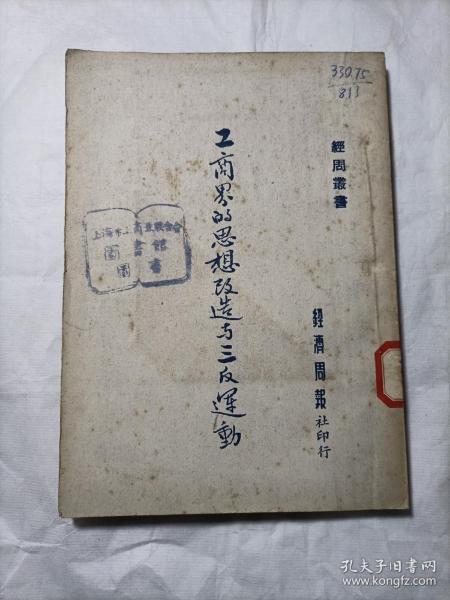 330.75
813
經周叢書
工商界的思想改造与三反運動
經濟周報社印行
上海市工商業聯合會
圖書館
圖書
孔夫子旧书网
www.kongfz.com